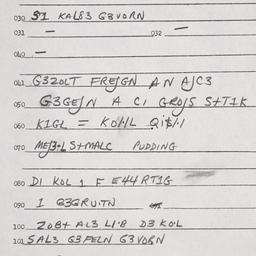 030 S1 KAL83 G3VORN
031 — 032 —
040 —
041 G3ZOLT FREJGN AN AJC3
050 G3GEJN A C1 GROJS S+T1K
060 K1GL = KOHL
070 S+MALC PUDDING
080 D1 KOL 1 F E44RT1G
090 1 G3GRU1TN
100 ZOB+ AL3 D3 KOL
101 SAL3 G3FELN G3VORN